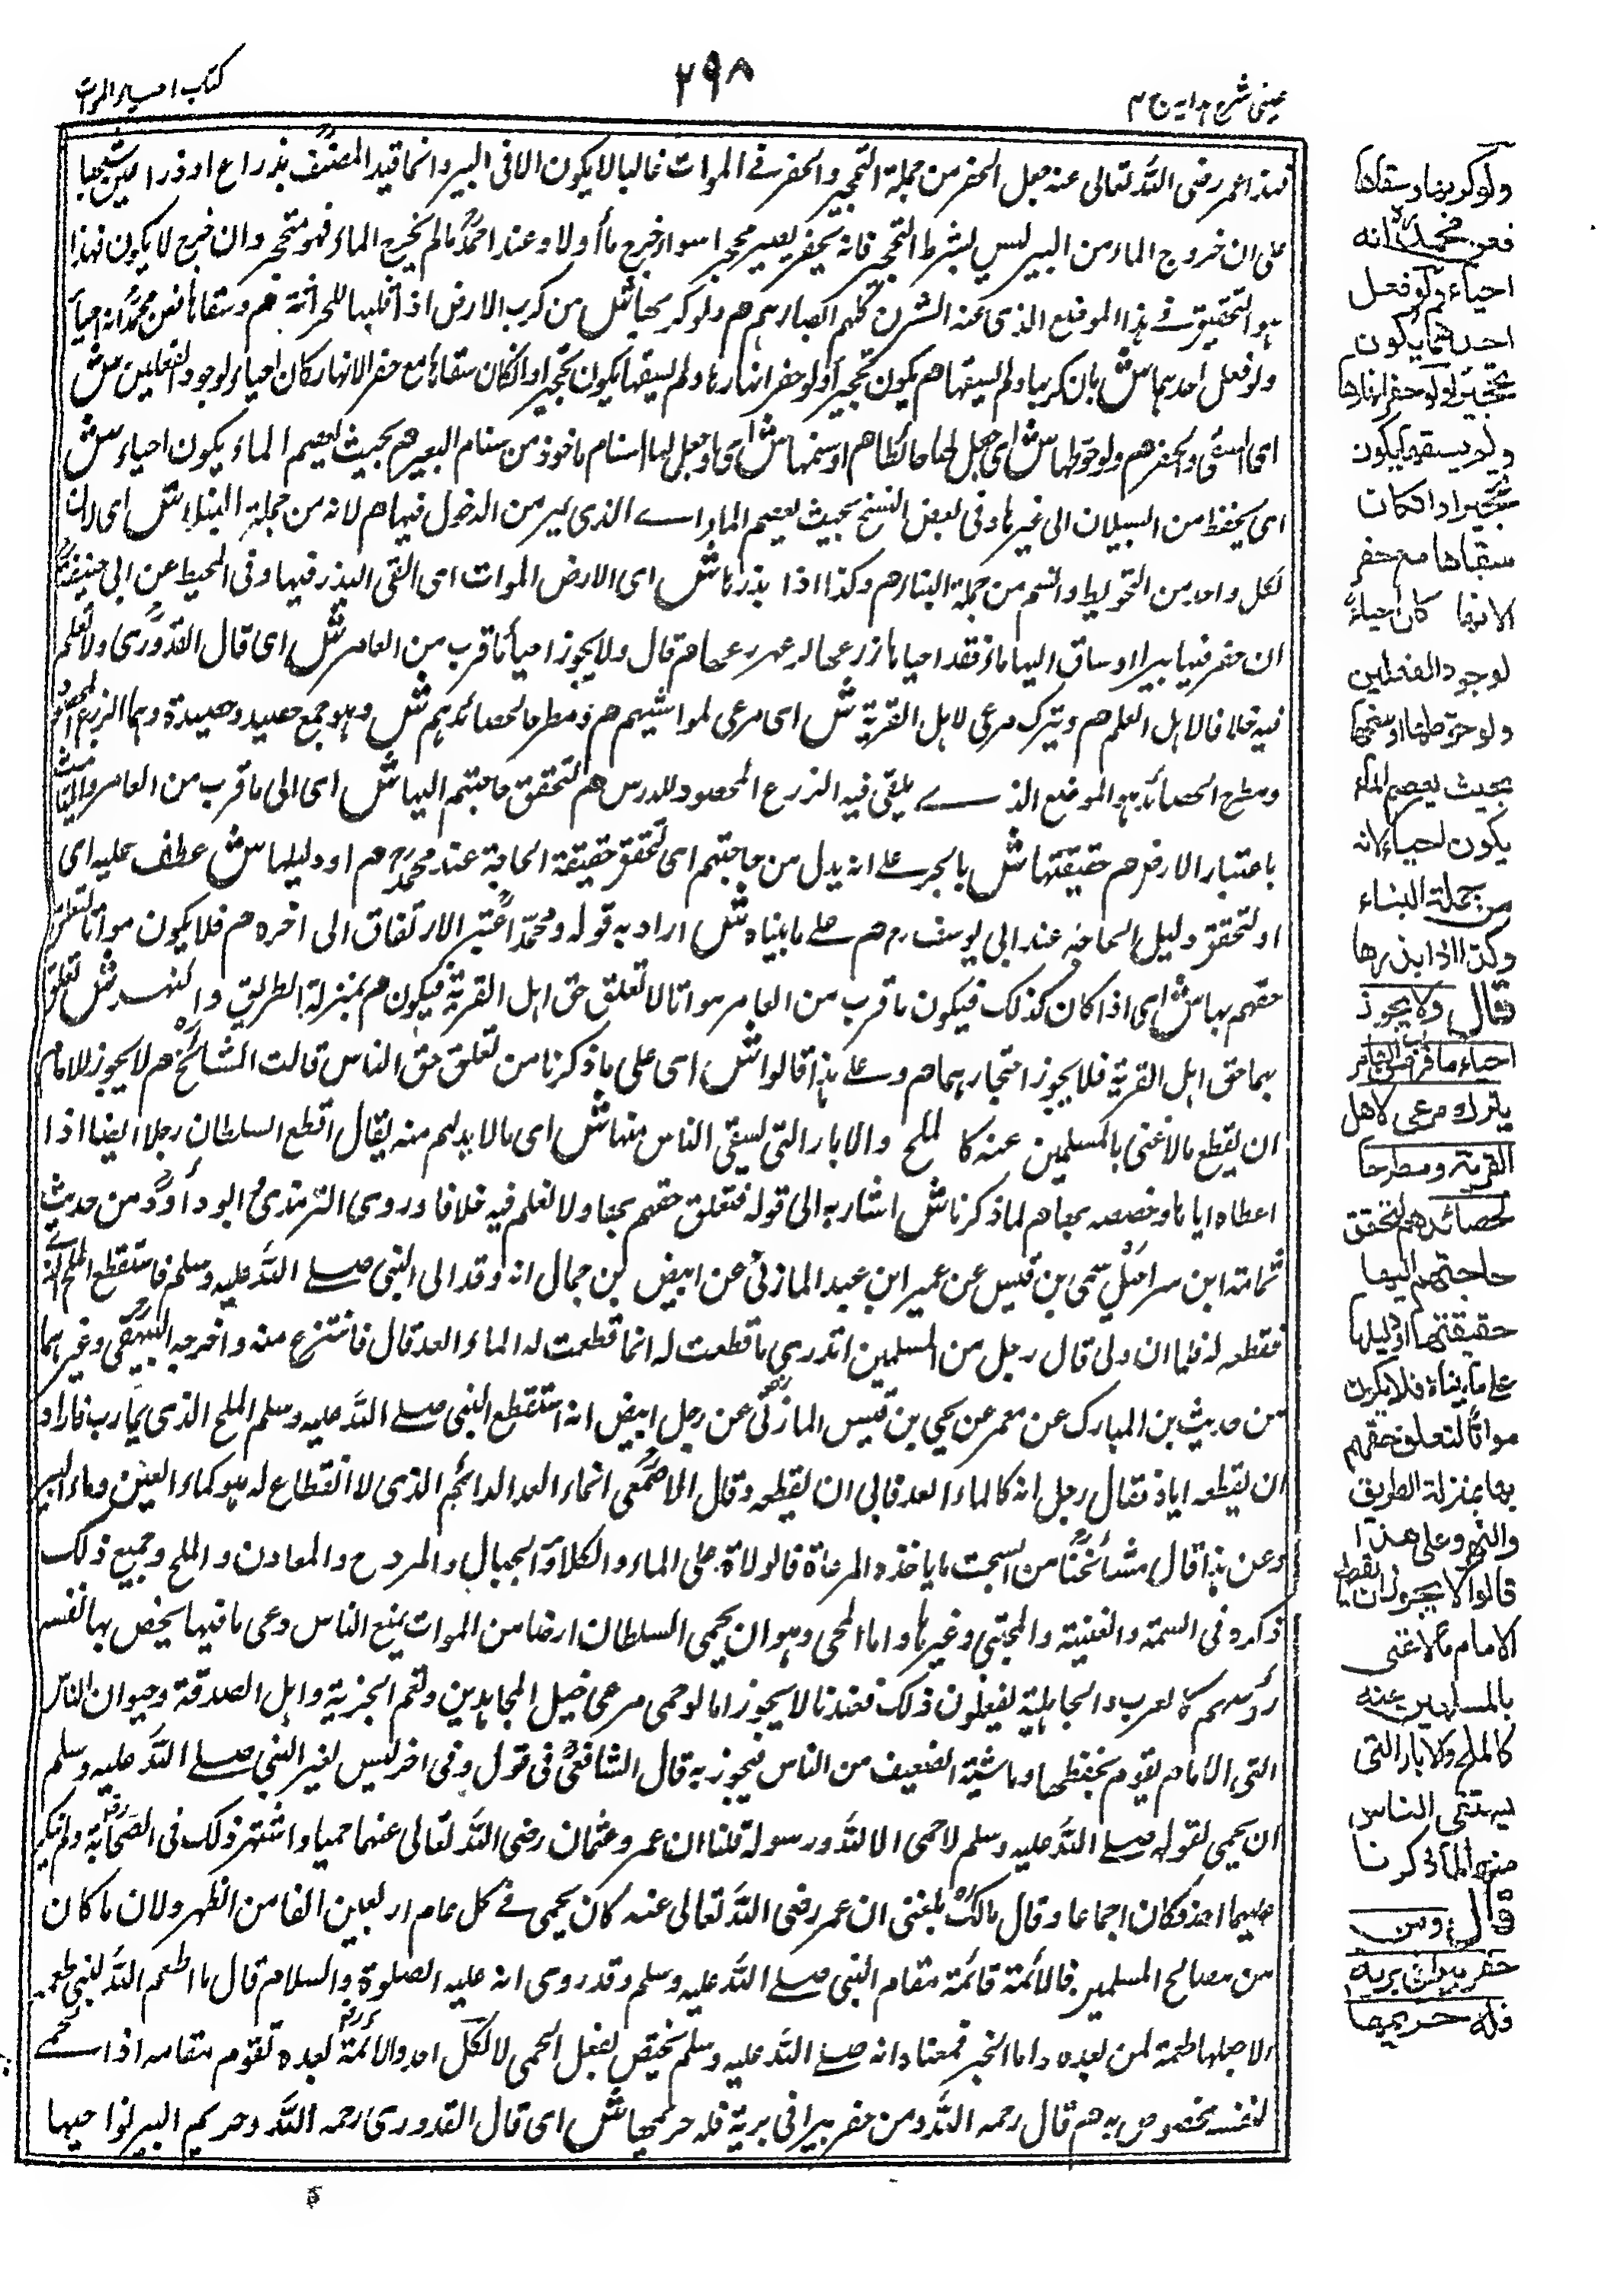 عینی شرح هدایه ج ۴
۲۹۸
کتاب احیاء الموات
فهذا عمر رضی اللہ تعالی عنه جعل الحفر من جملة التحجیر والحفر فی الموات غالبا لا یکون الا فی البیر وانما قید المصنف بذراع او ذراعین
علی ان خروج الماء من البیر لیس بشرط التحجیر فانه یحفر یصیر محجرا سواء خرج ماء اولا وعند احمد ما لم یخرج الماء فهو متحجر وان خرج لا یکون فهذا
هو التحقیق فی هذا الموضع الذی عنه الشرن کلهم ابصارهم هم ولو کربها ش من کرب الارض اذا قلبها للحراثة هم وسقاها فعن محمد انه احیاء
ولو فعل احدهما ش بان کربها ولم یسقها هم یکون تحجیرا ولو حفر انهارها ولم یسقها یکون تحجیرا وان کان سقاها مع حفر الانهار کان احیاء لوجود الفعلین ش
ای السقی والحفر هم ولو حوطها ش ای جعل لها حائطا هم او سنمها ش ای او جعل لها السنام ماخوذ من سنام البعیر هم بحیث یعصم الماء یکون احیاء ش
ای یحفظ من السیلان الی غیرها وفی بعض النسخ بحیث یعصم الماء ای الذی یمر من الدخول فیها هم لانه من جملة البناء ش ای لان
لکل واحد من التحویط والتسنم من جملة البناء هم وکذا اذا بذرها ش ای الارض الموات ای القی البذر فیها وفی المحیط عن ابی حنیفة
ان حفر فیها بیرا او ساق الیها ماء فقد احیاها زرعها او لم یزرعها هم قال ولا یجوز احیاء ما قرب من العامر ش ای قال القدوری ولا نعلم
فیه خلافا لاهل العلم هم ویترک مرعی لاهل القریة ش ای مرعی لمواشیهم هم ومطرحا لحصائدهم ش وهو جمع حصید وحصیدة وهما الزرع المحصود
ومطرح الحصائد هو الموضع الذی یلقی فیه الزرع المحصود للدرس هم لتحقق حاجتهم الیها ش ای الی ما قرب من العامر
باعتبار الارض هم حقیقتها ش بالجر علی انه بدل من حاجتهم ای لتحقق حقیقة الحاجة عند محمد هم او دلیلها ش عطف علیه ای
او لتحقق دلیل الحاجة عند ابی یوسف رح هم علی ما بیناه ش اراد به قوله ومحمد اعتبر الارتفاق الی اخره هم فلا یکون مواتا لتعلق
حقهم بها ش ای اذا کان کذلک فیکون ما قرب من العامر مواتا لا تعلق حق اهل القریة فیکون هم بمنزلة الطریق والنهر ش تعلق
بهما حق اهل القریة فلا یجوز احتجارهما هم وعلی هذا قالوا ش ای علی ما ذکرنا من تعلق حق الناس قالت المشائخ هم لا یجوز للامام
ان یقطع ما لا غنی بالمسلمین عنه کالملح والابار التی یسقی الناس منها ش ای ما لا بد لهم منه یقال اقطع السلطان رجلا ارضا اذا
اعطاه ایاها وخصصه بها هم لما ذکرنا ش اشار به الی قوله فتعلق حقهم بها ولا نعلم فیه خلافا وروی الترمذی وابو داود من حدیث
ثمامة ابن سراحیل سمی بن قیس عن عمیر ابن عبد المازنی عن ابیض بن جمال انه وفد الی النبی صلی اللہ علیه وسلم فاستقطع الملح
فقطعه له فلما ان ولی قال رجل من المسلمین اتدری ما قطعت له انما قطعت له الماء العد قال فانتزع منه واخرجه البیهقی وغیرهما
من حدیث بن المبارک عن معمر عن یحیی بن قیس المازنی عن رجل ابیض انه استقطع النبی صلی اللہ علیه وسلم الملح الذی بمارب فاراد
ان یقطعه ایاه فقال رجل انه کالماء العد فابی ان یقطعه وقال الاصمعی انماء العد الدائم الذی لا انقطاع له هو کماء العین وماء البیر
وعن هذا قال مشائخنا من السحت ما یاخذه المرعاة فالولاة علی الماء والکلاء والجبال والمروج والمعادن والملح وجمیع ذلک
ذکره فی السمة والغنیة والمجتبی وغیرها واما الحمی وهو ان یحمی السلطان ارضا من الموات یمنع الناس رعی ما فیها یخص بها نفسه
کالعرب والجاهلیة یفعلون ذلک فعندنا لا یجوز اما لو حمی مرعی خیل المجاهدین ونعم الجزیة وابل الصدقة وحیوان الناس
التی الامام یقوم بحفظها وماشیة الضعیف من الناس فیجوز به قال الشافعی فی قول وفی اخر لیس لغیر النبی صلی اللہ علیه وسلم
ان یحمی لقوله صلی اللہ علیه وسلم لا حمی الا للہ ورسوله قلنا ان عمر وعثمان رضی اللہ تعالی عنهما حمیا واشتهر ذلک فی الصحابة ولم ینکر
علیهما احد فکان اجماعا وقال مالک بلغنی ان عمر رضی اللہ تعالی عنه کان یحمی فی کل عام اربعین الفا من الظهر ولان ما کان
من مصالح المسلمین فالائمة قائمة مقام النبی صلی اللہ علیه وسلم وقد روی انه علیه الصلوة والسلام قال ما اطعم اللہ لنبی طعمة
الا جعلها طعمة لمن بعده واما الخبر فمعناه انه صلی اللہ علیه وسلم یختص بفعل الحمی لا لکل احد والائمة بعده تقوم مقامه اذا حمی
لنفسه بخصوص به هم قال رحمه اللہ ومن حفر بیرا فی بریة فله حریمها ش ای قال القدوری رحمه اللہ وحریم البیر نواحیها
ولو کربها وسقاها
فعن محمد انه
احیاء ولو فعل
احدهما یکون
تحجیرا ولو حفر انهارها
ولم یسقها یکون
تحجیرا وان کان
سقاها مع حفر
الانهار کان احیاء
لوجود الفعلین
ولو حوطها او سنمها
بحیث یعصم الماء
یکون احیاء لانه
من جملة البناء
وکذا اذا بذرها
قال ولا یجوز
احیاء ما قرب من العامر
یترک مرعی لاهل
القریة ومطرحا
لحصائدهم لتحقق
حاجتهم الیها
حقیقتها او دلیلها
علی ما بیناه فلا یکون
مواتا لتعلق حقهم
بها بمنزلة الطریق
والنهر وعلی هذا
قالوا لا یجوز ان یقطع
الامام ما لا غنی
بالمسلمین عنه
کالملح والابار التی
یستقی الناس
منها لما ذکرنا
قال ومن
حفر بیرا فی بریة
فله حریمها